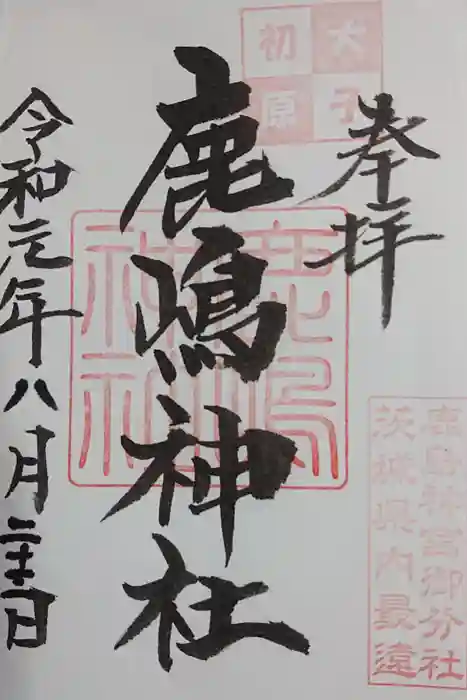 奉拝
大子
初原
鹿嶋神社
鹿嶋神社
鹿島神宮御分社
茨城県内最遠
令和元年八月二十二日